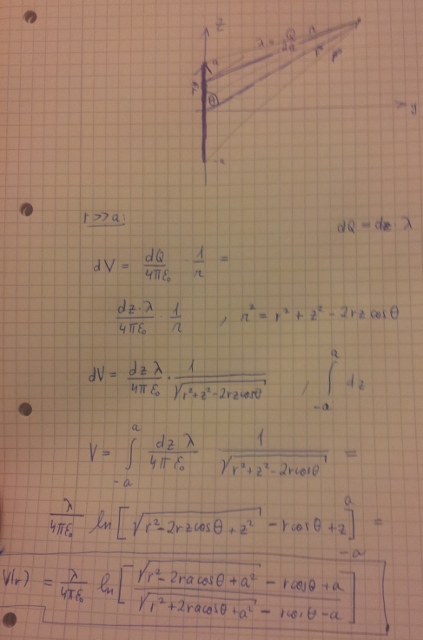 z
λ = Q/2a
a
θ
y
-a
r >> a:
dQ = dz · λ
dV = dQ/4πε₀ · 1/r =
dz·λ/4πε₀ · 1/r , r² = r² + z² − 2rz cosθ
dV = dz λ/4πε₀ · 1/√(r²+z²−2rz cosθ) , ∫_{-a}^{a} dz
V = ∫_{-a}^{a} dz λ/4πε₀ 1/√(r²+z²−2r cosθ) =
λ/4πε₀ ln[√(r²−2rz cosθ+z²) − r cosθ + z]_{-a}^{a} =
V(r) = λ/4πε₀ ln[(√(r²−2ra cosθ+a²) − r cosθ + a)/(√(r²+2ra cosθ+a²) − r cosθ − a)]